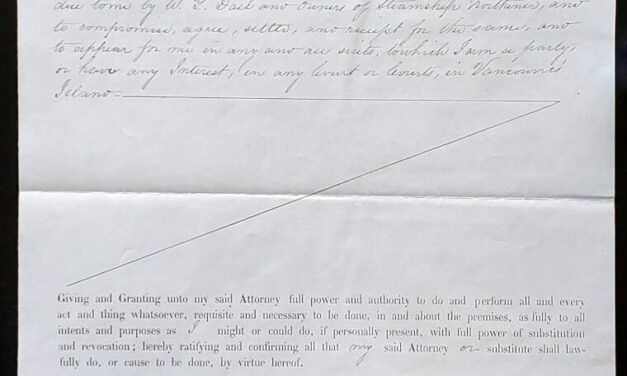 due to me by W. L. Dall and Owners of Steamship Northener, and
to compromise, agree, settle, and receipt for the same, and
to appear for me in any and all suits, to which I am a party,
or have any Interest, in any Court or Courts, in Vancouver's
Island
Giving and Granting unto my said Attorney full power and authority to do and perform all and every
act and thing whatsoever, requisite and necessary to be done, in and about the premises, as fully to all
intents and purposes as I might or could do, if personally present, with full power of substitution
and revocation; hereby ratifying and confirming all that my said Attorney or substitute shall law-
fully do, or cause to be done, by virtue hereof.